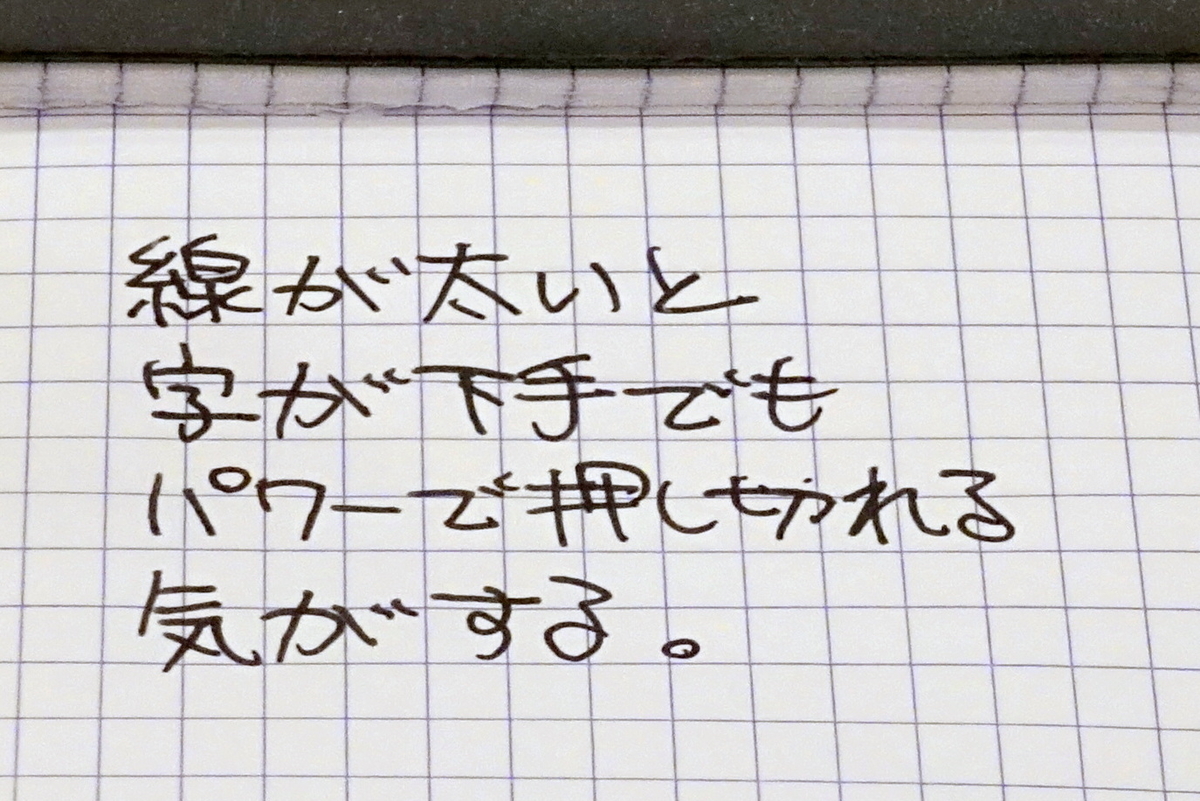 線が太いと
字が下手でも
パワーで押し切れる
気がする。